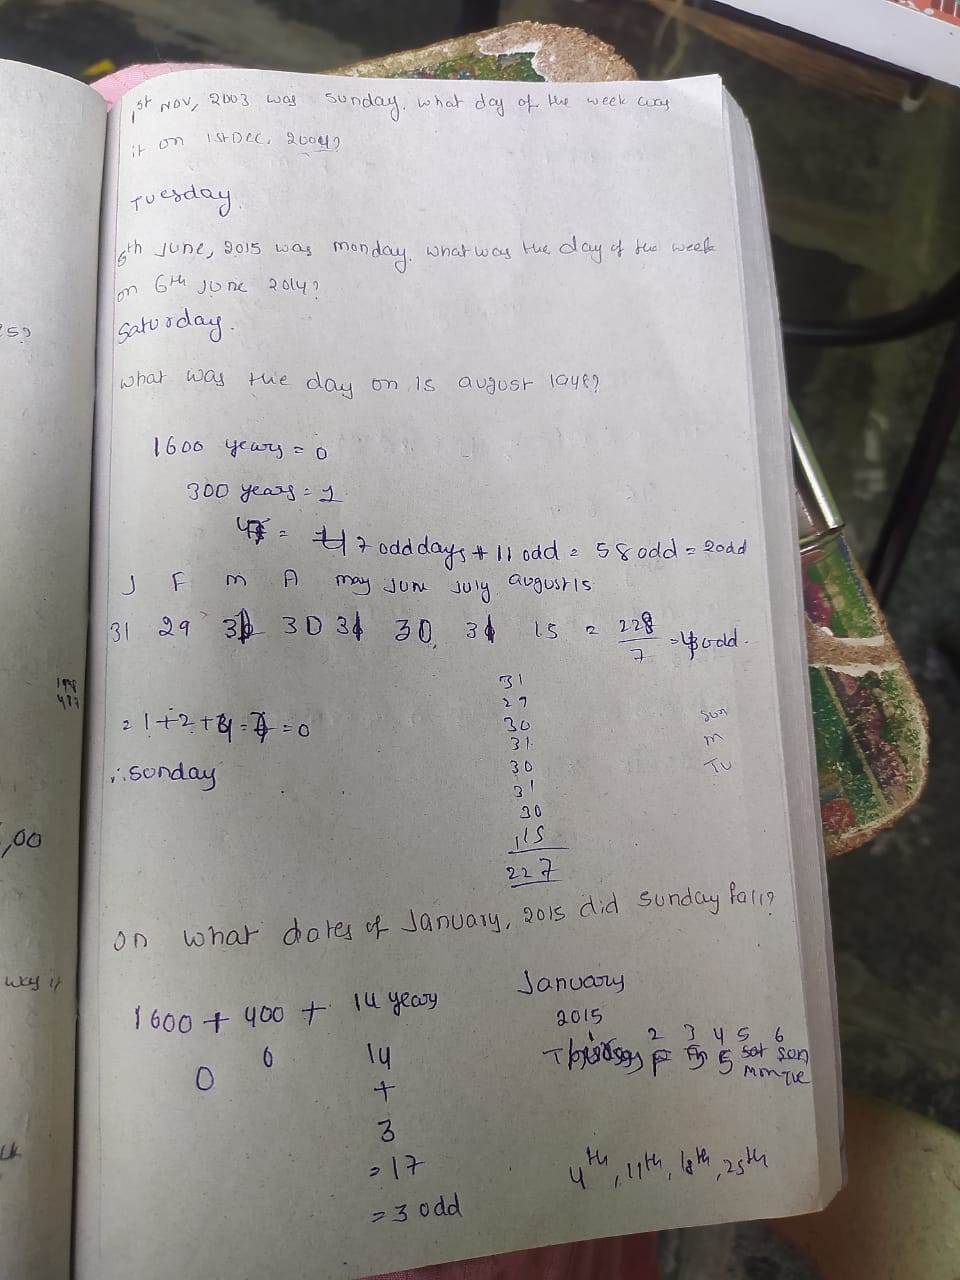 1st NOV, 2003 was sunday. what day of the week was
it on 1st DEC. 2004?
Tuesday.
6th June, 2015 was monday. what was the day of the week
on 6th June 2014?
Saturday.
what was the day on 15 august 1948?
1600 years = 0
300 years = 1
47 = 47 odd days + 11 odd = 58 odd = 2 odd
J F m A may June July august 15
31 29 31 30 31 30 31 15 = 228/7 = 4 odd.
= 1+2+4 = 7 = 0
∴ sunday
31
29
30
31
30
31
30
15
227
sun
m
Tu
198
,00
was it
On what dates of January, 2015 did sunday fall?
1600 + 400 + 14 years
0 0 14
+
3
= 17
= 3 odd
January
2015
1 2 3 4 5 6
Sat Sun
Mon Tue
4th, 11th, 18th, 25th